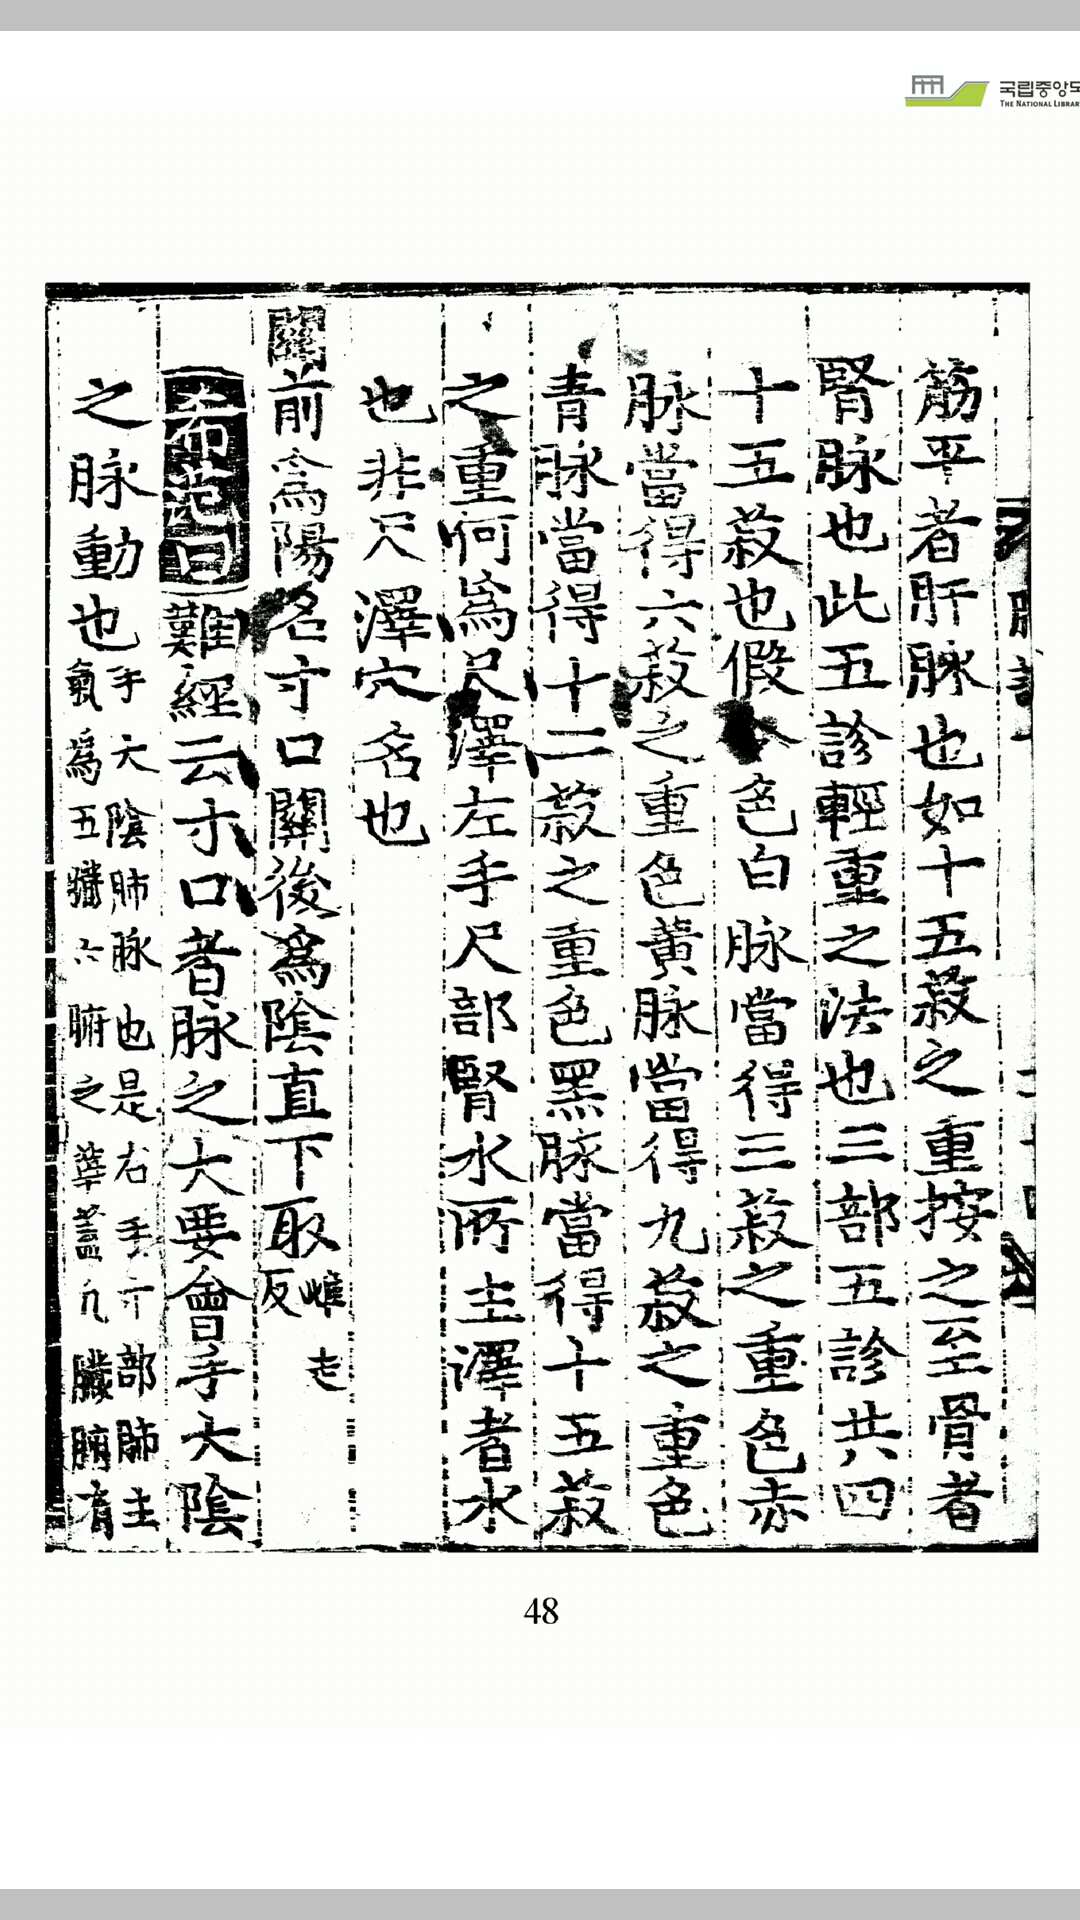 국립중앙도
THE NATIONAL LIBRAR
筋平者肝脉也如十五菽之重按之至骨者
腎脉也此五診輕重之法也三部五診共四
十五菽也假令色白脉當得三菽之重色赤
脉當得六菽之重色黃脉當得九菽之重色
青脉當得十二菽之重色黑脉當得十五菽
之重何爲尺澤左手尺部腎水所主澤者水
也非尺澤穴名也
關前爲陽名寸口關後爲陰直下取
難經云寸口者脉之大要會手太陰
之脉動也
手太陰肺脉也是右手寸部肺主
氣爲五臟六腑之華蓋凡臟腑有
48